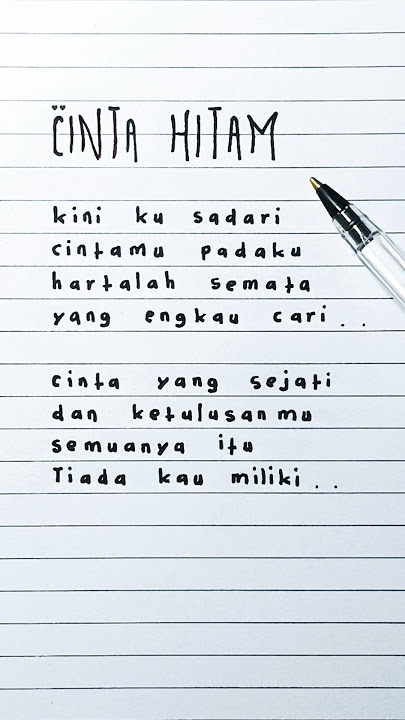 CINTA HITAM
kini ku sadari
cintamu padaku
hartalah semata
yang engkau cari . .
cinta yang sejati
dan ketulusanmu
semuanya itu
Tiada kau miliki . .